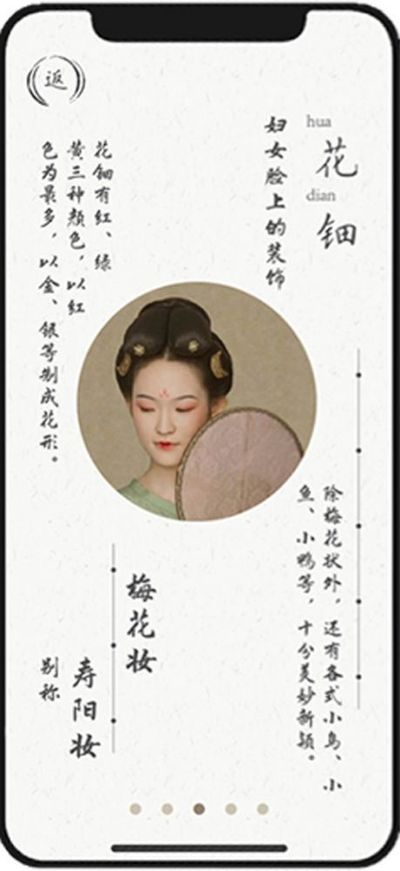 返
hua
花
dian
钿
妇女脸上的装饰
花钿有红、绿
黄三种颜色，以红
色为最多，以金、银等制成花形。
除梅花状外，还有各式小鸟、小
鱼、小鸭等，十分美妙新颖。
梅花妆
寿阳妆
别称